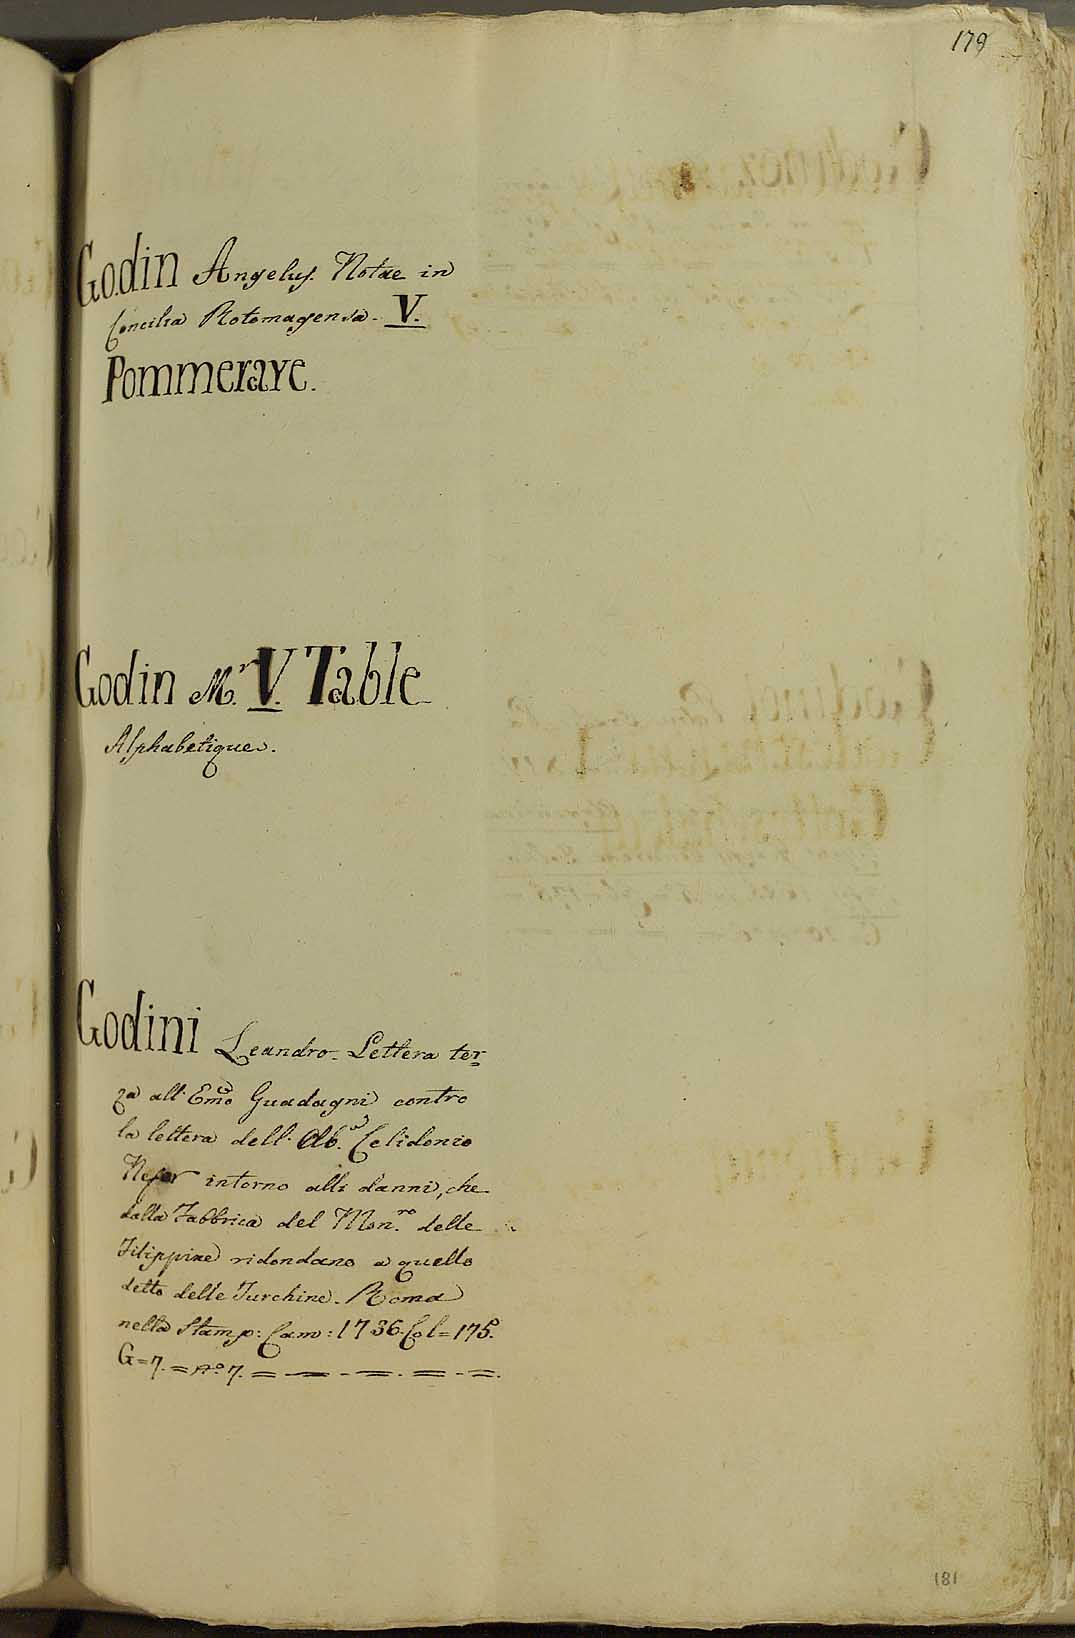 179
Godin Angelus. Notae in
Concilia Rotomagensia. V.
Pommeraye.
Godin Mr. V. Table
Alphabetique.
Godini Leandro. Lettera ter=
za all' Emo Guadagni contro
la lettera dell' Ab.e Celidonio
Nefer intorno alli danni, che
dalla Fabbrica del Mon.ro delle
Filippine ridondano a quello
detto delle Turchine. Roma
nella Stamp: Cam: 1736. Col = 175.
G=7. = no 7. = = - = . = - =.
181